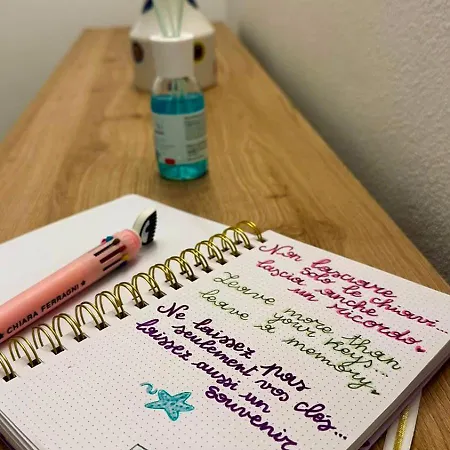 Non lasciare
solo le chiavi...
lascia anche
un ricordo
Leave more than
leave your keys...
a memory
Ne laissez pas
seulement vos clés...
laissez aussi un
souvenir
CHIARA FERRAGNI